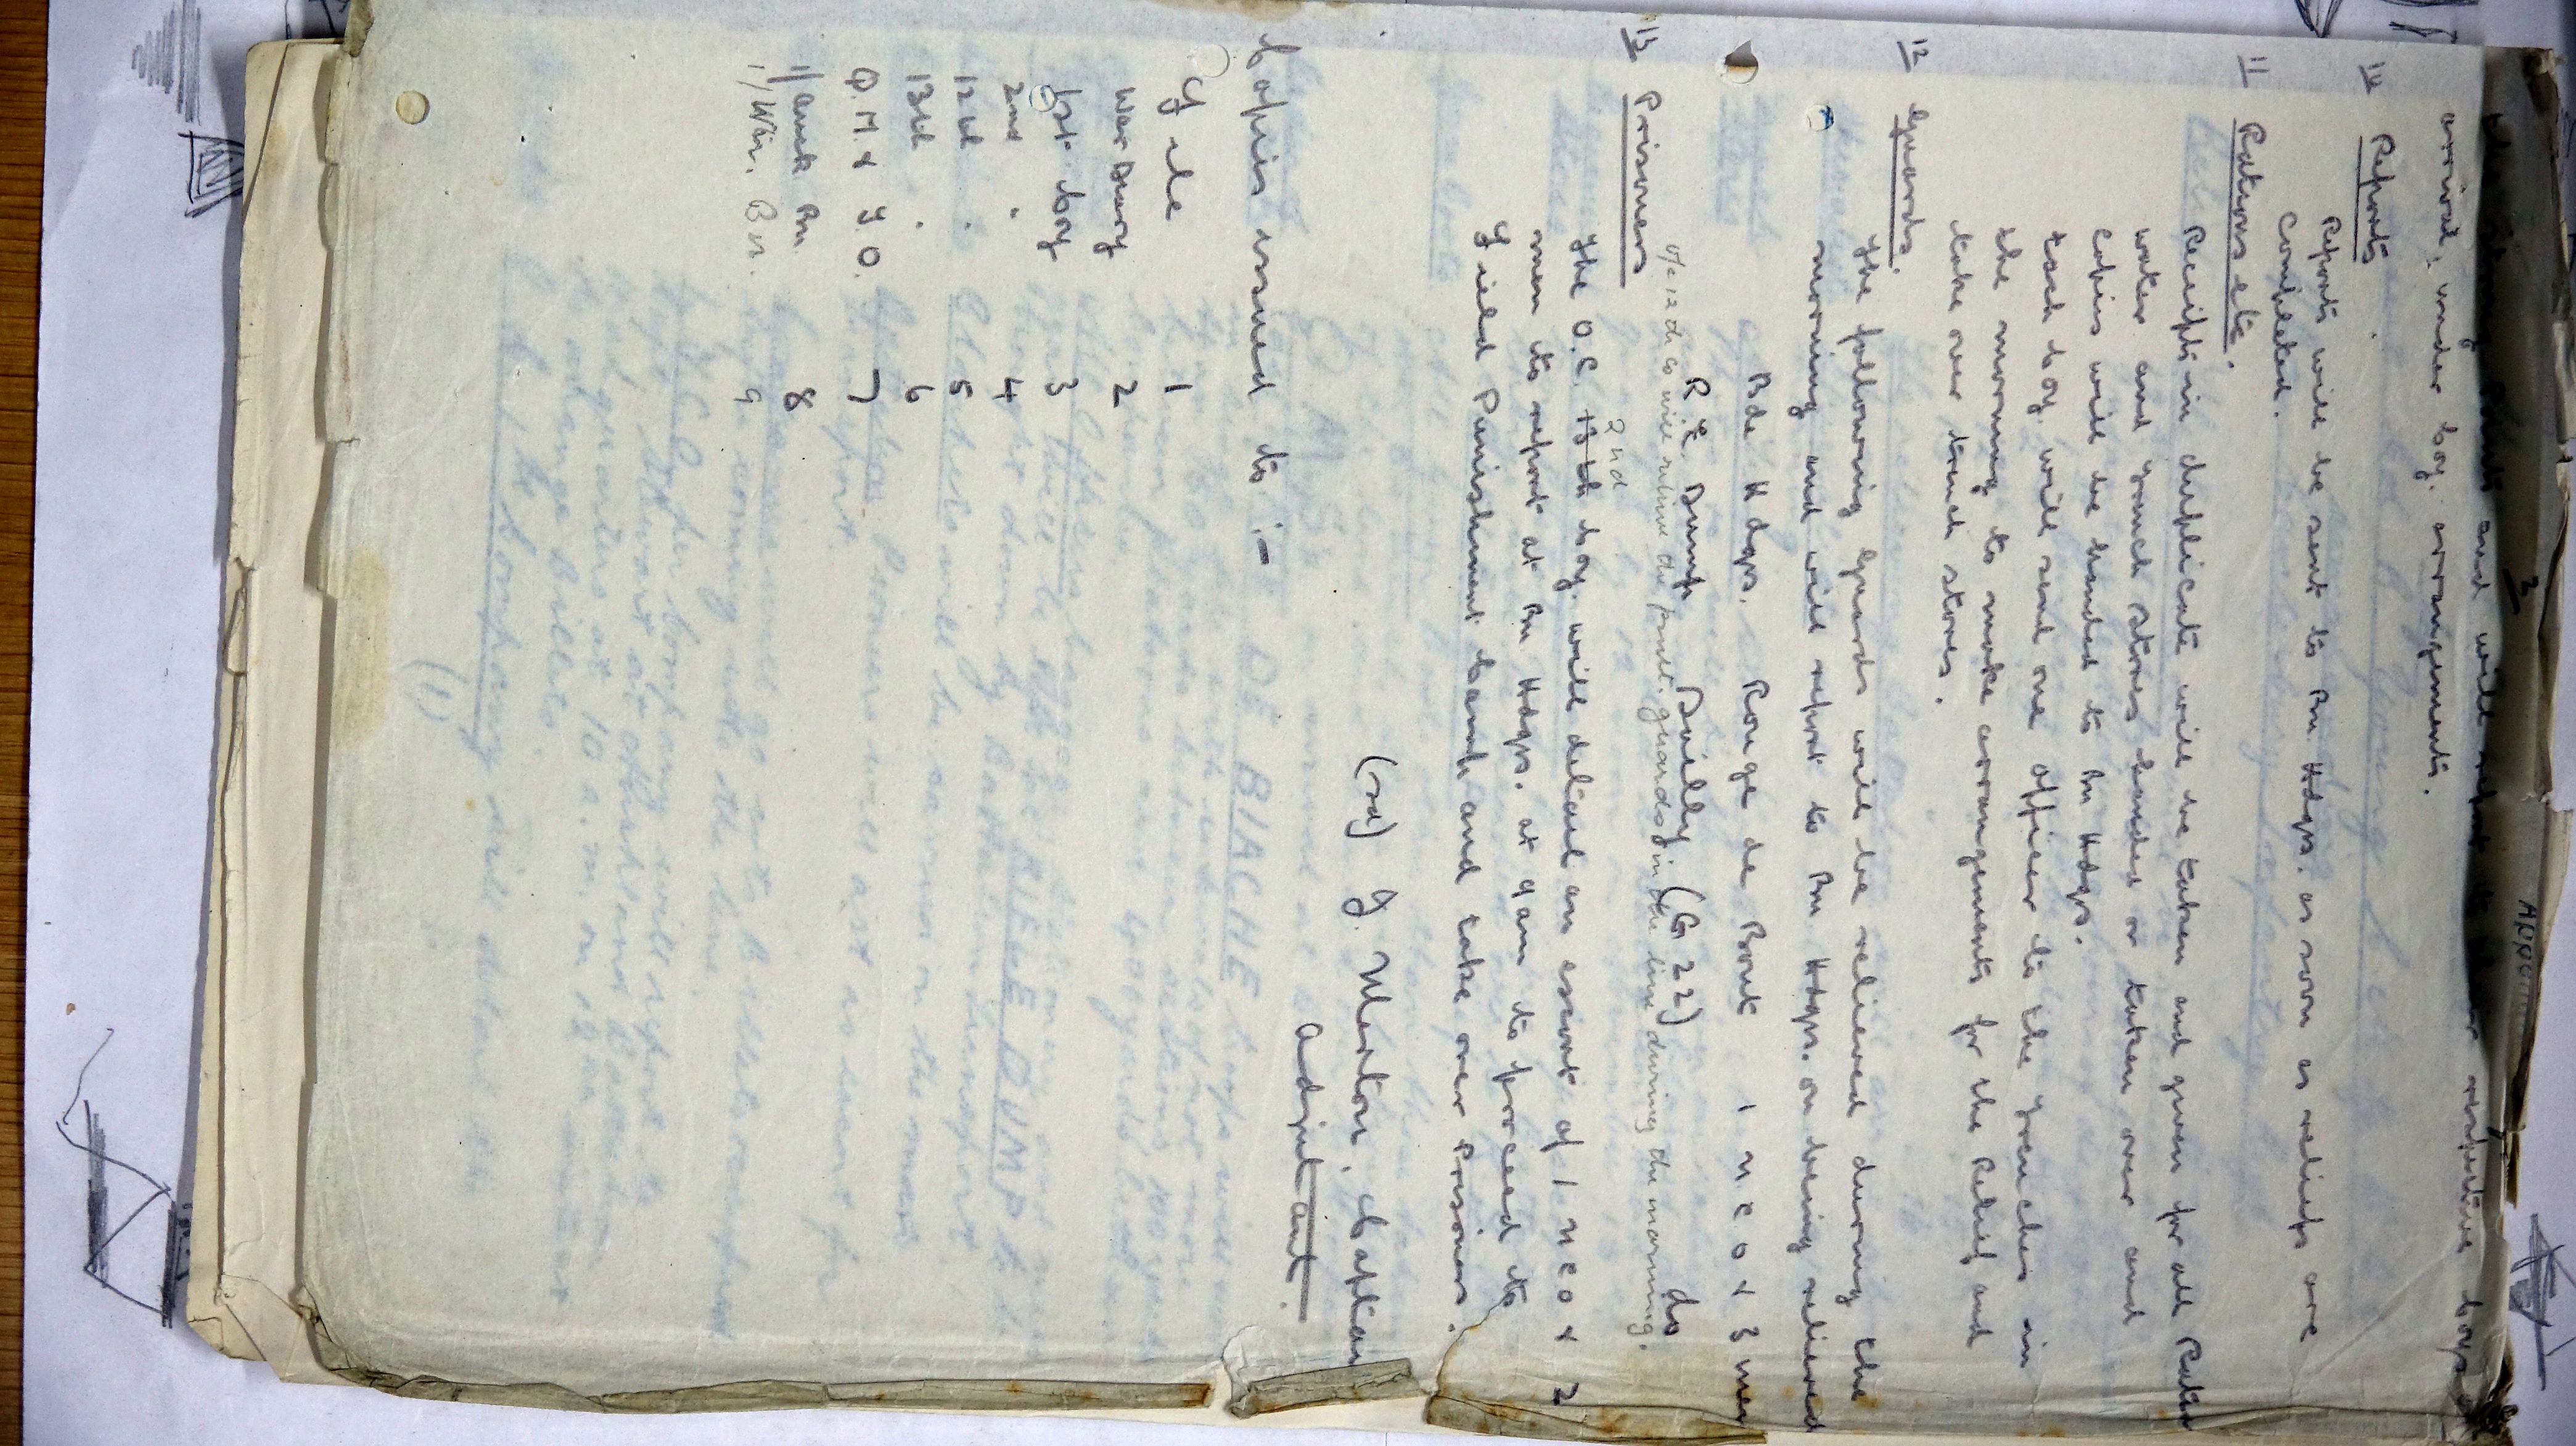 3
and will report to their respective Coys on
arrival, under Coy. arrangements.
10 Reports
Reports will be sent to Bn Hdqrs. as soon as reliefs are
completed.
11 Rations etc.
Receipts in duplicate will be taken and given for all Rations
water and trench stores handed or taken over and
copies will be handed to Bn Hdqrs.
Each Coy. will send one officer to the trenches in
the morning to make arrangements for the Relief and
take over trench stores.
12 Guards.
The following Guards will be relieved during the
morning and will report to Bn Hdqrs. on being relieved
Bde Hdqrs. Rouge de Bout 1 NCO & 3 men
R.E. Dump Duilly (G 22) do
O/c 12th Co will relieve the guards in the line during the morning.
13 Prisoners
2nd
The O.C. 13th Coy. will detail an escort of 1 NCO & 2
men to report at Bn Hdqrs. at 9am to proceed to
Field Punishment Camp and take over Prisoners.
(sd) J. Menton, Captain
Adjutant.
Copies issued to :-
File 1
War Diary 2
1st Coy 3
2nd " 4
12th " 5
13th " 6
Q.M. & T.O. 7
1/ Auck Bn 8
1/ Wln. Bn. 9